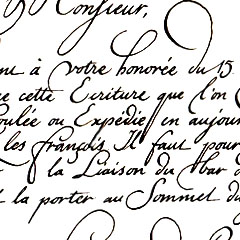 Monsieur,
à votre honorée du 15
cette Ecriture que l'on
oulée ou Expédiée en aujour
les françois Il faut pour
la Liaison du bar
la porter au Sommet du